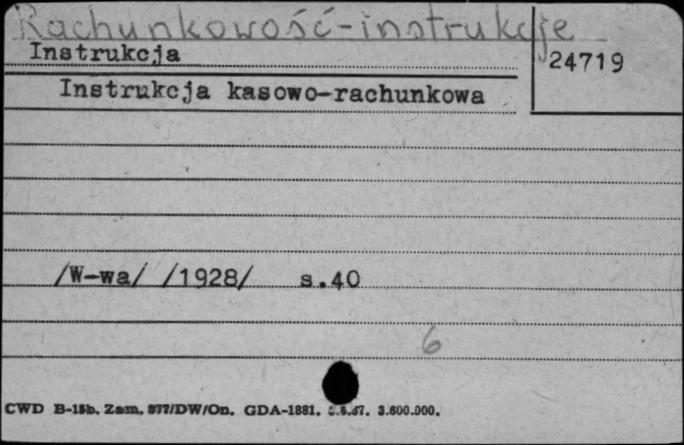 Rachunkowość-instrukcje
Instrukcja
24719
Instrukcja kasowo-rachunkowa
/W-wa/ /1928/ s.40
6
CWD B-15b. Zam. 877/DW/On. GDA-1881. 5.67. 3.600.000.